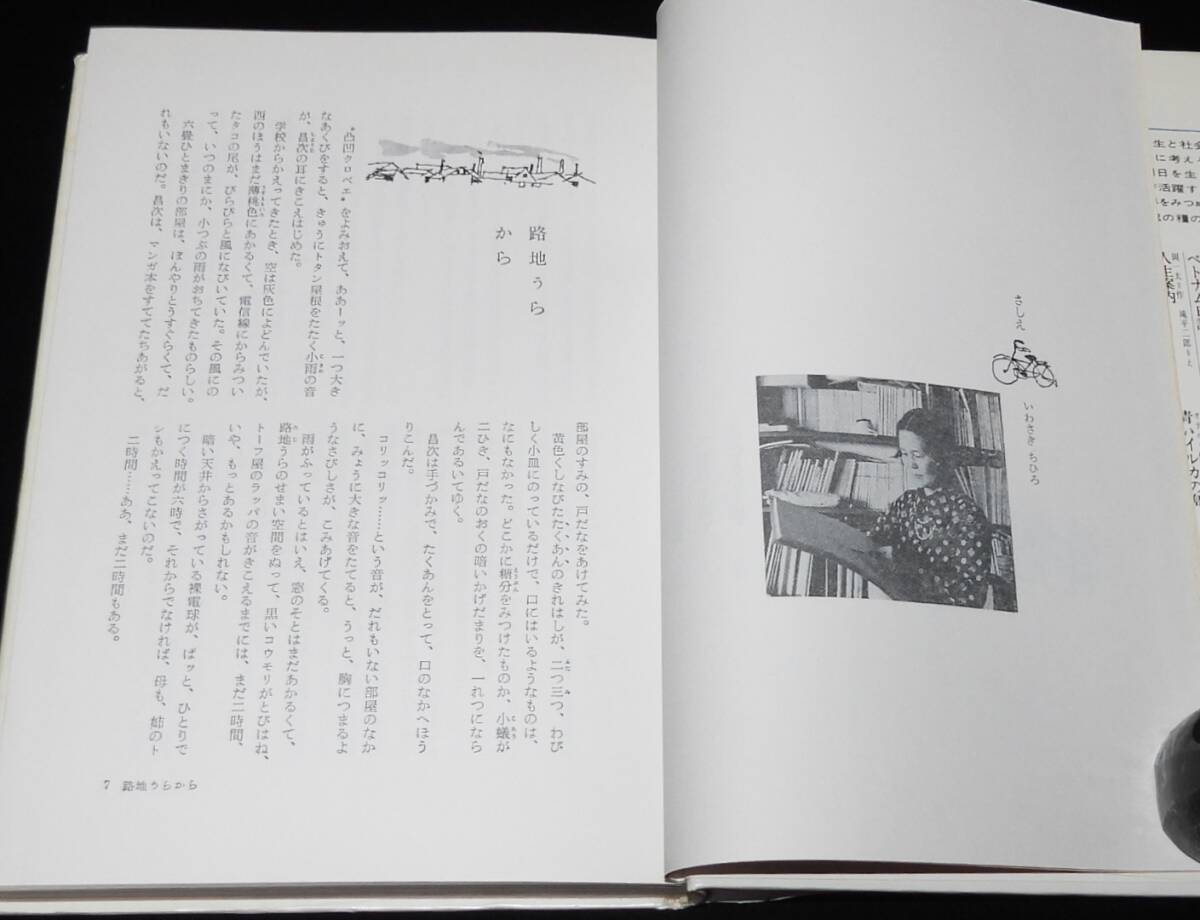 生と社会
に考え
日を生
活躍す
をみつめ
の糧の
人生案内
さしえ
いわさきちひろ
路地うら
から
〝凸凹クロベエ〟をよみおえて、ああーッと、一つ大き
なあくびをすると、きゅうにトタン屋根をたたく小雨の音
が、昌次の耳にきこえはじめた。
学校からかえってきたとき、空は灰色によどんでいたが、
西のほうはまだ薄桃色にあかるくて、電信線にからみつい
たタコの尾が、ぴらぴらと風になびいていた。その風にの
って、いつのまにか、小つぶの雨がおちてきたものらしい。
六畳ひとまきりの部屋は、ぼんやりとうすぐらくて、だ
れもいないのだ。昌次は、マンガ本をすててたちあがると、
部屋のすみの、戸だなをあけてみた。
黄色くしなびたたくあんのきれはしが、二つ三つ、わび
しく小皿にのっているだけで、口にはいるようなものは、
なにもなかった。どこかに糖分をみつけたものか、小蟻が
二ひき、戸だなのおくの暗いかげだまりを、一れつになら
んであるいてゆく。
昌次は手づかみで、たくあんをとって、口のなかへほう
りこんだ。
コリッコリッ……という音が、だれもいない部屋のなか
に、みょうに大きな音をたてると、うっと、胸につまるよ
うなさびしさが、こみあげてくる。
雨がふっているとはいえ、窓のそとはまだあかるくて、
路地うらのせまい空間をぬって、黒いコウモリがとびはね、
トーフ屋のラッパの音がきこえるまでには、まだ二時間、
いや、もっとあるかもしれない。
暗い天井からさがっている裸電球が、ぱッと、ひとりで
につく時間が六時で、それからでなければ、母も、姉のト
シもかえってこないのだ。
二時間……ああ、まだ二時間もある。
7 路地うらから